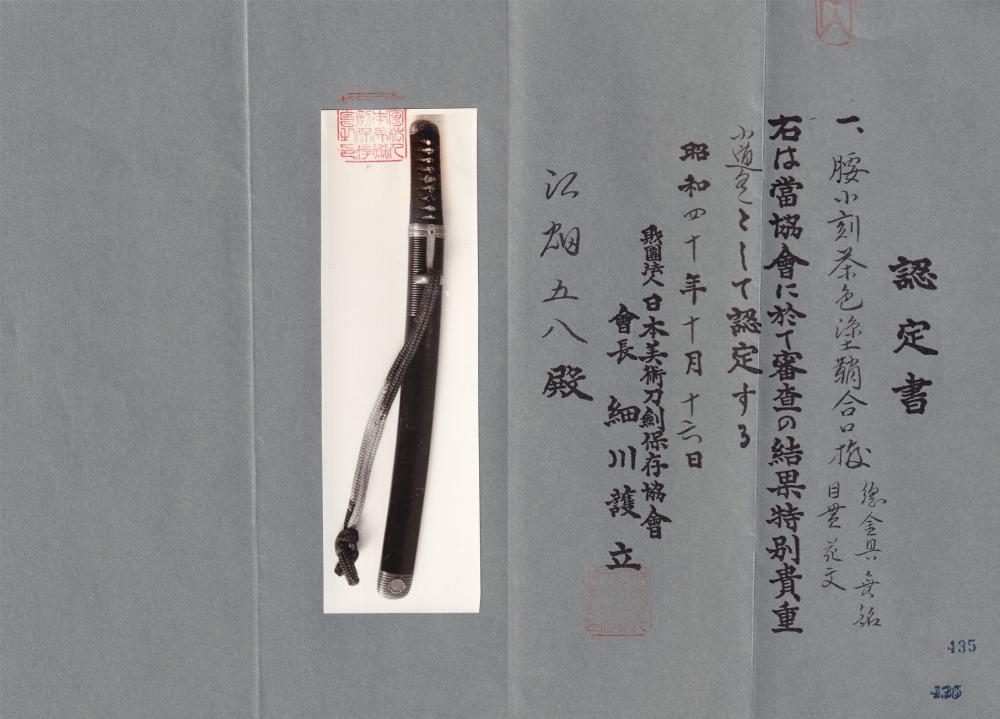 認定書
一、腰小刻茶色塗鞘合口拵
総金具無銘
目貫花文
右は當協會に於て審査の結果特別貴重
小道具として認定する
昭和四十年十月十六日
財團法人日本美術刀劍保存協會
會長 細川護立
江畑五八殿
435